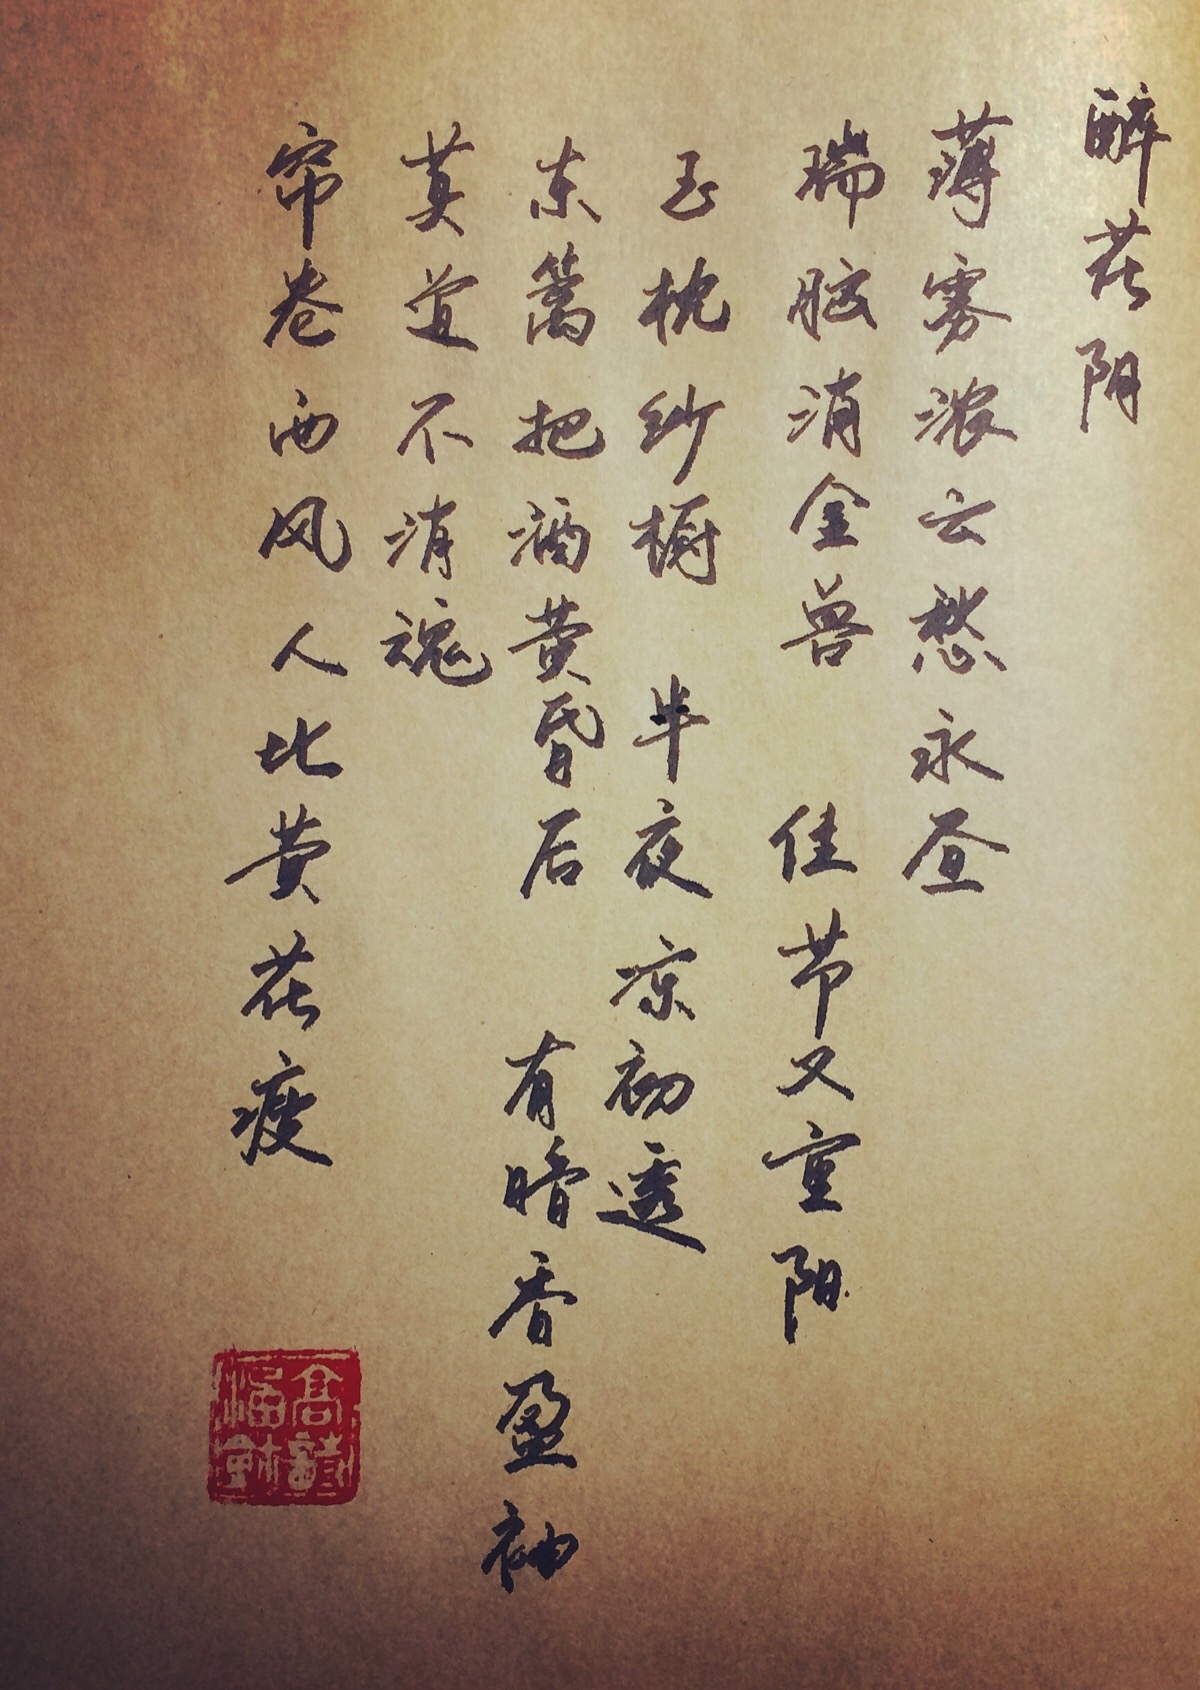 醉花阴
薄雾浓云愁永昼
瑞脑消金兽 佳节又重阳
玉枕纱橱 半夜凉初透
东篱把酒黄昏后 有暗香盈袖
莫道不消魂
帘卷西风人比黄花瘦